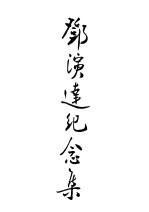 鄧演達紀念集